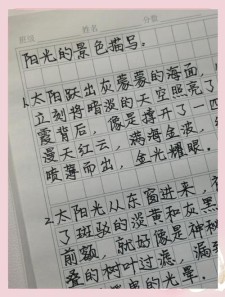 班级 姓名 分数
阳光的景色描写。
1.太阳跃出灰蒙蒙的海面，
立刻将暗淡的天空照亮了
霞背后，像是撑开了一
漫天红云，满海金波，
喷薄而出，金光耀眼。
2.太阳光从东窗进来，
了斑驳的淡黄和灰黑
前额，就好像是神秘
叠的树叶过滤，漏
的光晕。